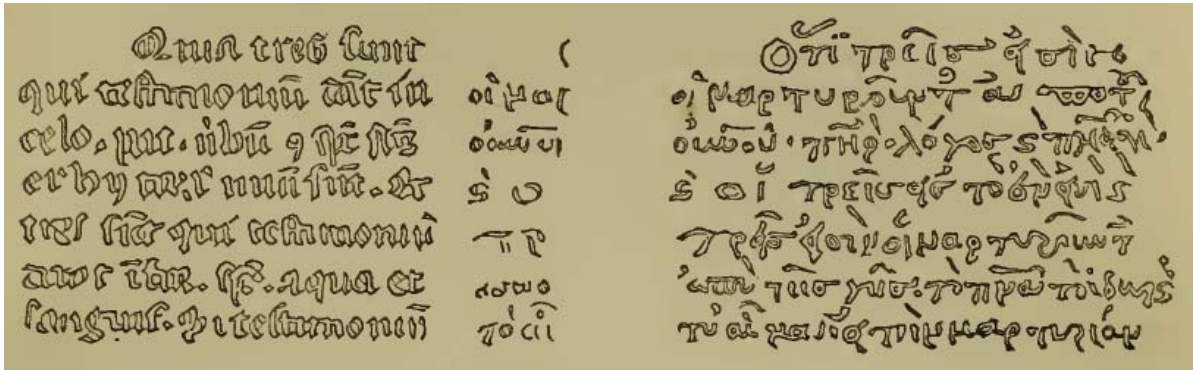 Quia tres sunt
qui testimoniū dāt in
celo. pat. ūbū ⁊ sp̄s sc̄s
et hij tres unū sūt. Et
tres sūt qui testimoniū
dant ī t̄ra. sp̄s. aqua et
sanguis. Si testimoniū
οἱ μαρ
ὁ
τρ
απο
τὸ αἷ
Ὅτι τρεῖσ εἰσιν
οἱ μαρτυροῦντ ἀπὸ τοῦ
οὐνοῦ· πηρ· λόγοσ
οἱ τρεῖσ εἰσ τὸ ἕν εἰσι
τρεῖσ εἰσιν οἱ μαρτυροῦντ
ἀπὸ τῆσ γῆσ· τὸ πνα τὸ ὕδωρ
τὸ αἷμα εἰ τὴν μαρτυρίαν